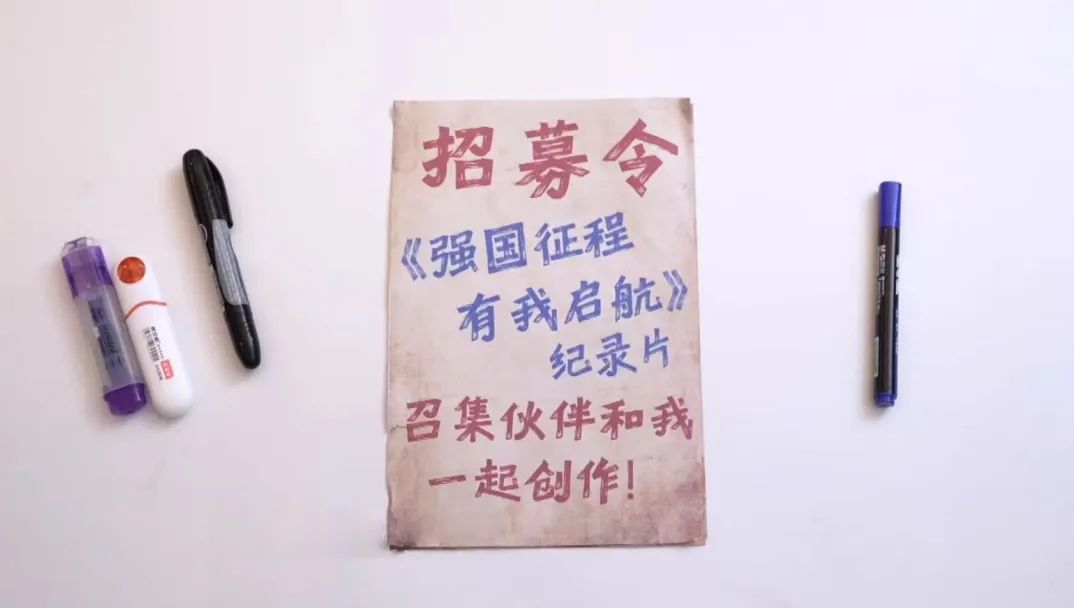 招募令
《强国征程
有我启航》
纪录片
召集伙伴和我
一起创作!